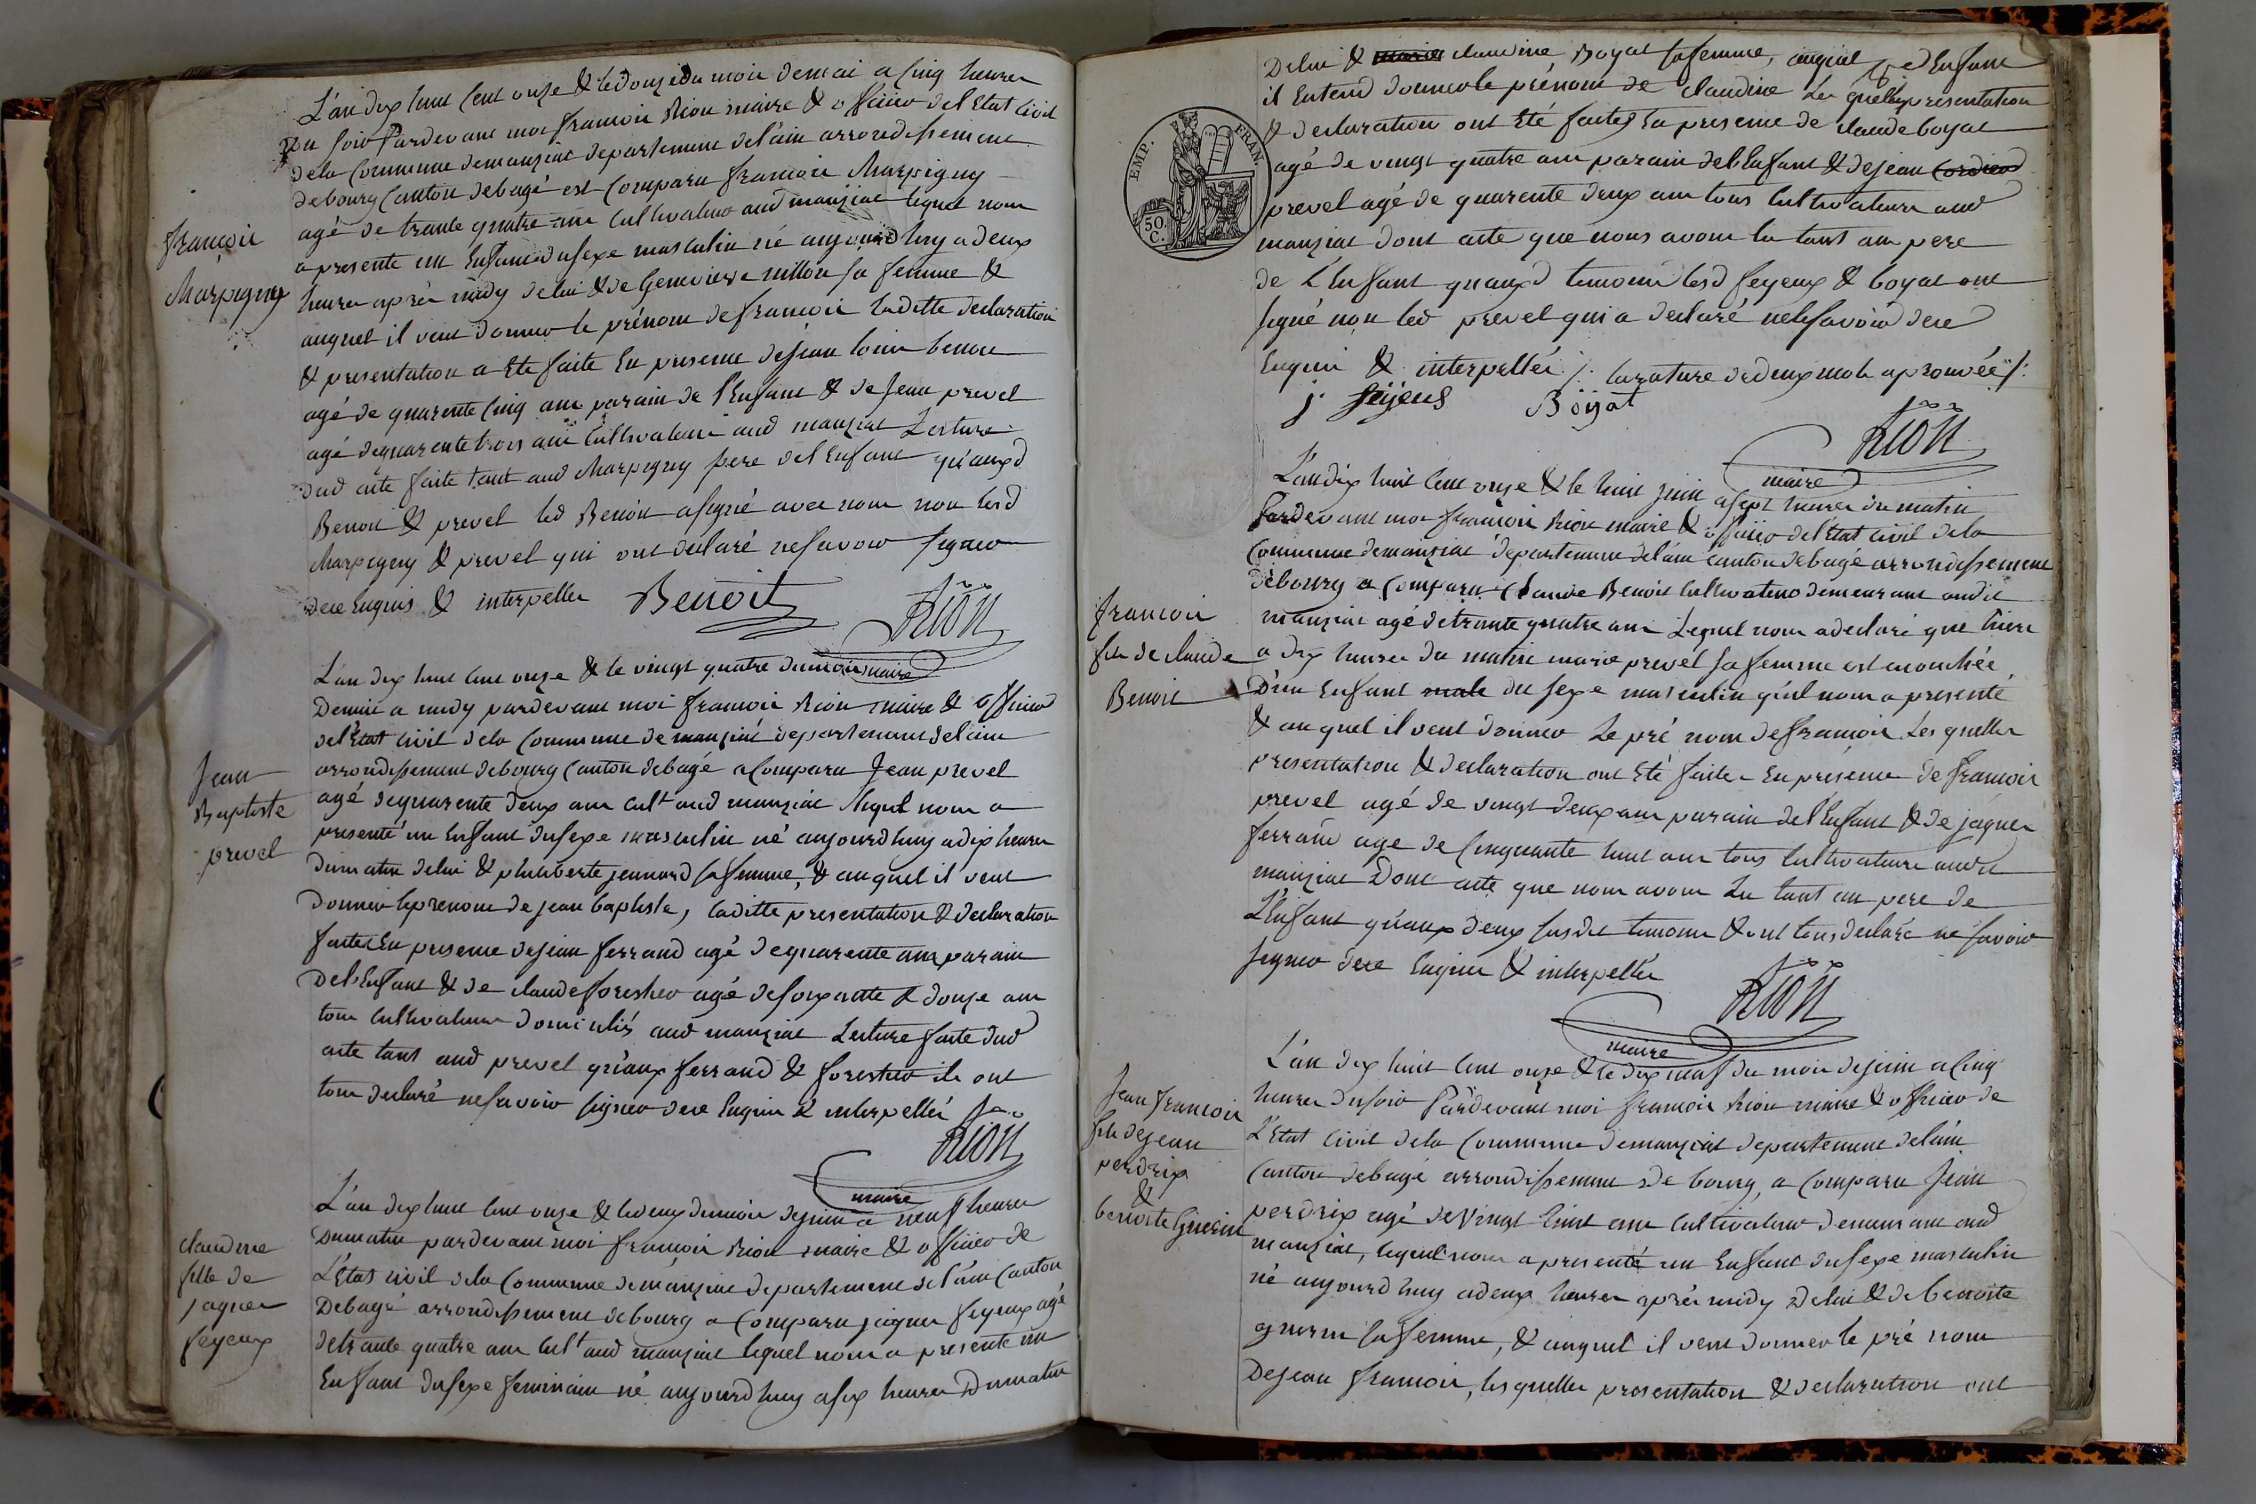 L'an dix huit cent onze & le douze du mois de mai a cinq heures
du soir Pardevant moi francois Rion maire & officier de l'Etat Civil
de la Commune de manziat departement de l'ain arrondissement
de bourg Canton de bagé est Comparu francois Marpigny
agé de trante quatre ans Cultivateur aud manziat lequel nous
a presenté un Enfant du sexe masculin né aujourd huy a deux
heures après midy de lui & de Genevieve nitton sa femme &
auquel il veut donner le prénom de francois laditte declaration
& presentation a Eté faite En presence de jean louis benoit
agé de quarente Cinq ans parain de l'Enfant & de Jean prevel
agé de quarente trois ans Cultivateurs aud manziat Lecture
dud acte faite tant aud Marpigny pere de l'Enfant qu'auxd
Benoit & prevel led Benoit a signé avec nous non lesd
Marpigny & prevel qui ont declaré ne savoir signer
de ce Enquis & interpellés Benoit Rion
maire
françois
Marpigny
L'an dix huit cent onze & le vingt quatre du mois
De mai a midy pardevant moi francois Rion maire & officier
de l'Etat civil de la Commune de manziat departement de l'ain
arrondissement de bourg Canton de bagé a Comparu Jean prevel
agé de quarente deux ans cult aud manziat lequel nous a
presenté un Enfant du sexe masculin né aujourd huy a dix heures
du matin de lui & philiberte jeunard sa femme, & auquel il veut
donner le prenom de jean baptiste, laditte presentation & declaration
faites En presence de jean ferrand agé de quarente ans parain
De l'Enfant & de claude forestier agé de soixante & douze ans
tous Cultivateurs domiciliés aud manziat Lecture faite dud
acte tant aud prevel qu'aux ferrand & forestier ils ont
tous declaré ne savoir signer de ce Enquis & interpellés
Rion
maire
Jean
Baptiste
prevel
L'an dix huit cent onze & le deux du mois de juin a neuf heures
Du matin pardevant moi francois Rion maire & officier de
L'Etat civil de la Commune de manziat departement de l'ain Canton
De bagé arrondissement de bourg a Comparu jaques feyeux agé
de trante quatre ans cult aud manziat lequel nous a presenté un
Enfant du sexe feminain né aujourd huy a six heures Du matin
claudine
fille de
jaques
feyeux
EMP. FRAN.
50.
C.
De lui & claudine Boyat sa femme, auquel Enfant
il Entend donner le prénom de Claudine Les quelles presentation
& declaration ont Eté faites En presence de claude boyat
agé de vingt quatre ans parain de l'Enfant & de jean Cordier
prevel agé de quarente deux ans tous Cultivateurs aud
manziat dont acte que nous avons lu tant au pere
de L'Enfant qu'auxd temoins lesd feyeux & boyat ont
signé non led prevel qui a declaré ne le savoir de ce
Enquis & interpellés /. la rature de deux mots aprouvée /.
j. feijeus Böyat
Rion
maire
L'an dix huit cent onze & le huit juin a sept heures du matin
Pardevant moi francois Rion maire & officier de l'Etat civil de la
Commune de manziat departement de l'ain Canton de bagé arrondissement
de bourg a Comparu Claude Benoit Cultivateur demeurant audit
manziat agé de trante quatre ans Lequel nous a declaré que hier
a dix heures du matin marie prevel sa femme est acouchée
D'un Enfant male du sexe masculin qu'il nous a presenté
& auquel il veut donner Le pré nom de francois Les quelles
presentation & declaration ont Eté faites En presence de francois
prevel agé de vingt deux ans parain de l'Enfant & de jaques
ferrand agé de Cinquante huit ans tous Cultivateurs audit
manziat Dont acte que nous avons Lu tant au pere de
L'Enfant qu'aux deux susdit temoins & ont tous declaré ne savoir
signer de ce Enquis & interpellés
Rion
maire
francois
fils de claude
Benoit
L'an dix huit cent onze & le dix neuf du mois de juin a Cinq
heures du soir Pardevant moi francois Rion maire & officier de
L'Etat Civil de la Commune de manziat departement de l'ain
Canton de bagé arrondissement de bourg, a Comparu Jean
perdrix agé de Vingt huit ans Cultivateur demeurant aud
manziat, lequel nous a presenté un Enfant du sexe masculin
né aujourd huy a deux heures après midy de lui & de benoite
guerin sa femme, & auquel il veut donner le pré nom
De jean francois, les quelles presentation & declaration ont
Jean francois
fils de jean
perdrix
&
benoite Guerin